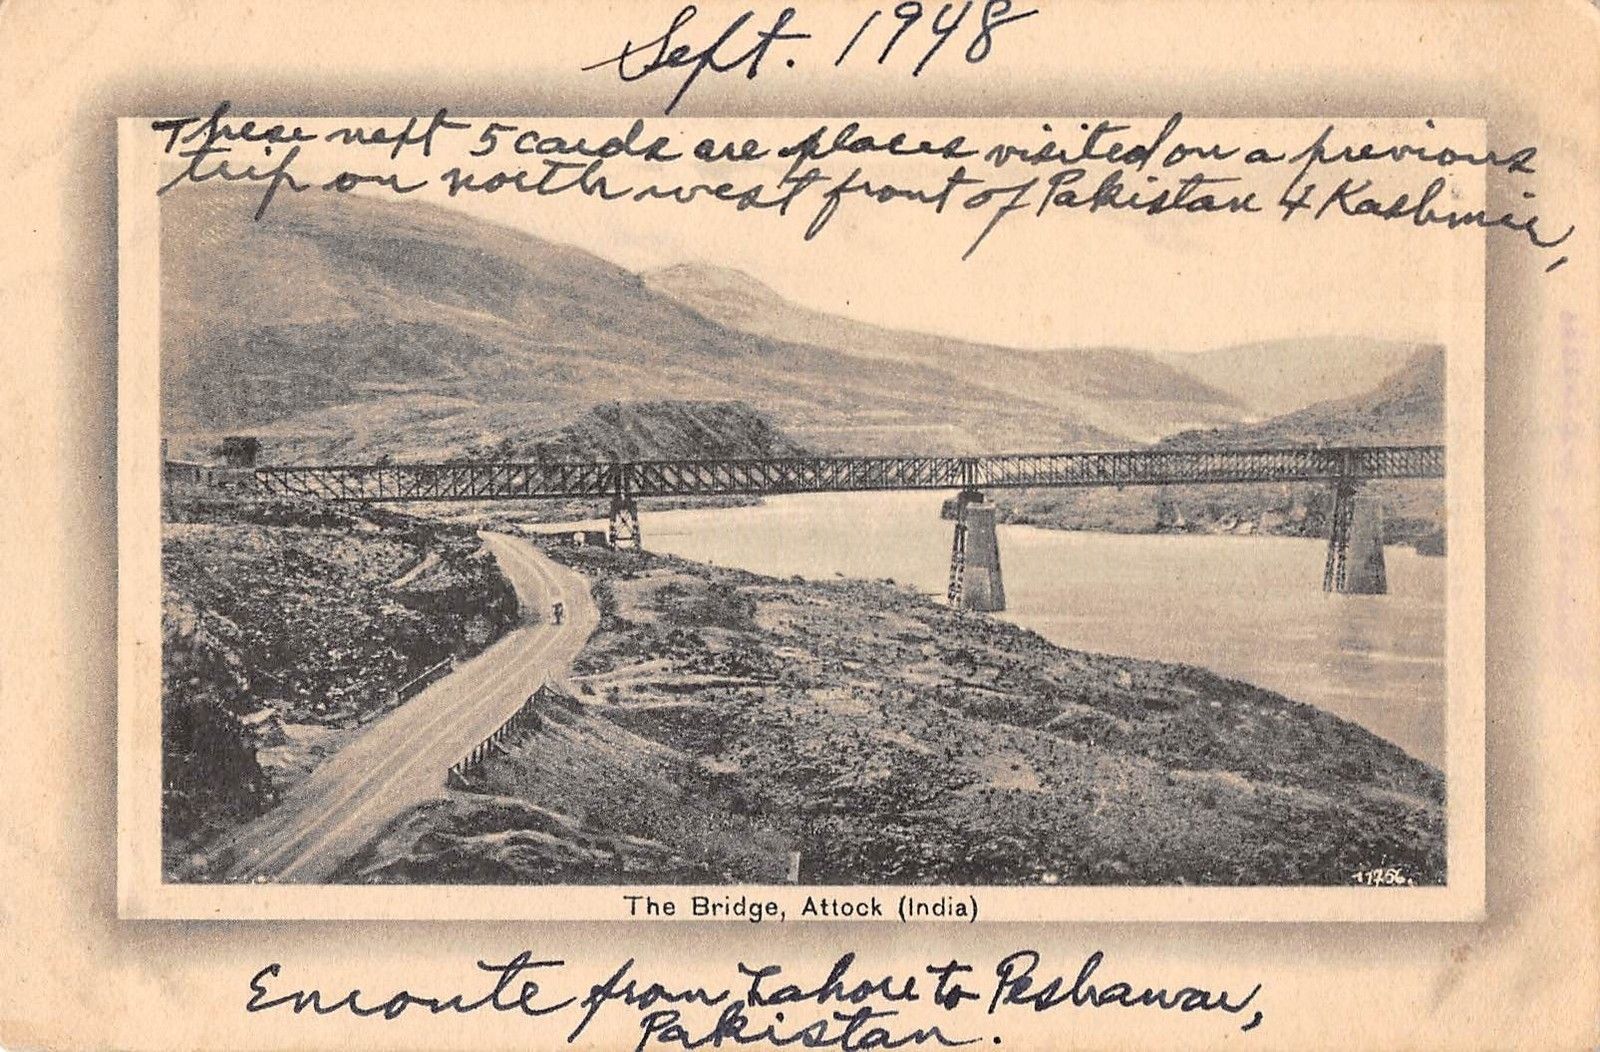 Sept. 1948
These next 5 cards are places visited on a previous
trip on north west front of Pakistan & Kashmir,
11756.
The Bridge, Attock (India)
Enroute from Lahore to Peshawar,
Pakistan.